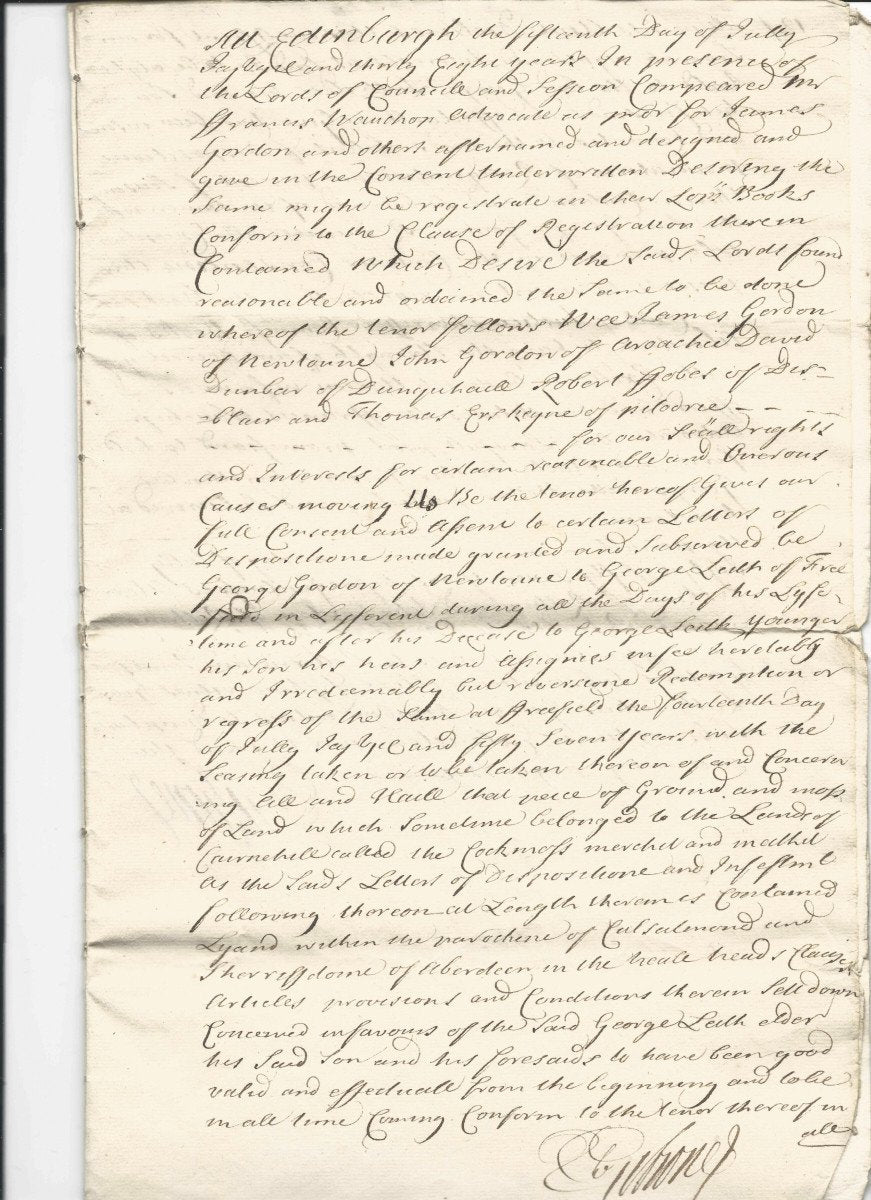 Att Edinburgh the fifteanth Day of Jully
Jajvijc and thirty Eight years In presence of
the Lords of Councill and Session Compeared Mr
ffrancis Wauchop Advocate as pror for James
Gordon and others afternamed and designed and
gave in the Consent Underwritten Desiring the
Same might be registrate in their Lops Books
Conform to the Clause of Registration therein
Contained Which Desire the Saids Lords found
reasonable and ordained the Same to be done
whereof the tenor follows Wee James Gordon
of Newtoune John Gordon of David
Dunbar of Robert ffobes of Dis-
-blair and Thomas Erskeyne of pitodrie - - - -
- - - - - - - for our Seall rights
and Interests for certain reasonable and Onerous
Causes moving Us Be the tenor hereof Gives our
full Consent and Assent to certain Letters of
Dispositione made granted and Subscrived be
George Gordon of Newtoune to George Leith of Free
field in Lyferent during all the Days of his Lyfe-
time and after his Decease to George Leith Younger
his Son his heirs and Assignies in fee heretably
and Irredeemably but reversione Redemption or
regress of the Same at ffreefield the fourteanth Day
of Jully Jajvjc and fifty Seven Years with the
Seasing taken or to be taken thereon of and Concern
ing All and Haill that peice of Ground and moss
of Land which Sometime belonged to the Lands of
Cairnehill called the Cockmoss merched and
As the Saids Letters of Dispositione and Infeftmt
following thereon at Length therein is Contained
Lyand within the parochine of Culsalmond and
Sherriffdome of Aberdeen in the heale heads Clauses
Articles provisions and Conditions therein Sett down
Conceived in favours of the Said George Leith elder
his Said Son and his foresaids to have been good
valid and effectuall from the beginning and to be
in all time Coming Conform to the tenor thereof in
all